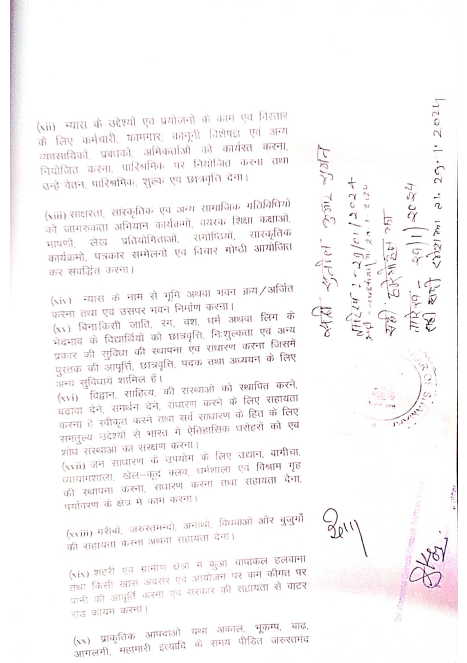 (xii) न्यास के उद्देश्यों एवं प्रयोजनों के काम एवं विस्तार
के लिए कर्मचारी, कामगार, कानूनी विशेषज्ञ एवं अन्य
व्यवसायिकों, प्रबंधकों, अभिकर्ताओं को कार्यरत करना,
नियोजित करना, पारिश्रमिक पर नियोजित करना तथा
उन्हे वेतन, पारिश्रमिक, शुल्क एवं छात्रवृत्ति देना।
(xiii) साक्षरता, सांस्कृतिक एवं अन्य सामाजिक गतिविधियों
को जागरुकता अभियान कार्यक्रमों, वयस्क शिक्षा कक्षाओं,
भाषणों, लेख प्रतियोगिताओं, संगोष्ठियों, सांस्कृतिक
कार्यक्रमों, पत्रकार सम्मेलनों एवं विचार गोष्ठी आयोजित
कर संवर्द्धित करना।
(xiv) न्यास के नाम से भूमि अथवा भवन क्रय/अर्जित
करना तथा एवं उसपर भवन निर्माण करना।
(xv) बिना किसी जाति, रंग, वंश, धर्म अथवा लिंग के
भेदभाव के विद्यार्थियों को छात्रवृत्ति, निःशुल्कता एवं अन्य
प्रकार की सुविधा की स्थापना एवं संधारण करना जिसमें
पुस्तक की आपूर्ति, छात्रवृत्ति, पदक तथा अध्ययन के लिए
अन्य सुविधायें शामिल हैं।
(xvi) विद्वान, साहित्य, की संस्थाओं को स्थापित करने,
बढावा देने, समर्थन देने, संधारण करने के लिए सहायता
करना है स्वीकृत करने तथा सर्व साधारण के हित के लिए
समतुल्य उद्देश्यों से भारत में ऐतिहासिक धरोहरों को एवं
शोध संस्थाओं का संरक्षण करना।
(xvii) जन साधारण के उपयोग के लिए उद्यान, बागीचा,
व्यायामशाला, खेल-कूद क्लब, धर्मशाला एवं विश्राम गृह
की स्थापना करना, संधारण करना तथा सहायता देना,
पर्यावरण के क्षेत्र में काम करना।
(xviii) गरीबों, जरुरतमन्दों, अनाथों, विधवाओं और बुजुर्गों
की सहायता करना अथवा सहायता देना।
(xix) शहरी एवं ग्रामीण क्षेत्रों में कुआं चापाकल हलवाना
तथा किसी खास अवसर एवं आयोजन पर कम कीमत पर
पानी की आपूर्ति करना एवं सरकार की सहायता से वाटर
शेड कायम करना।
(xx) प्राकृतिक आपदाओं यथा अकाल, भूकम्प, बाढ़,
आगलगी, महामारी इत्यादि के समय पीड़ित जरुरतमंद
सही सुनील कुमार सुमन
तारीख :- 29/01/2024
तारीख - 29/1/2024